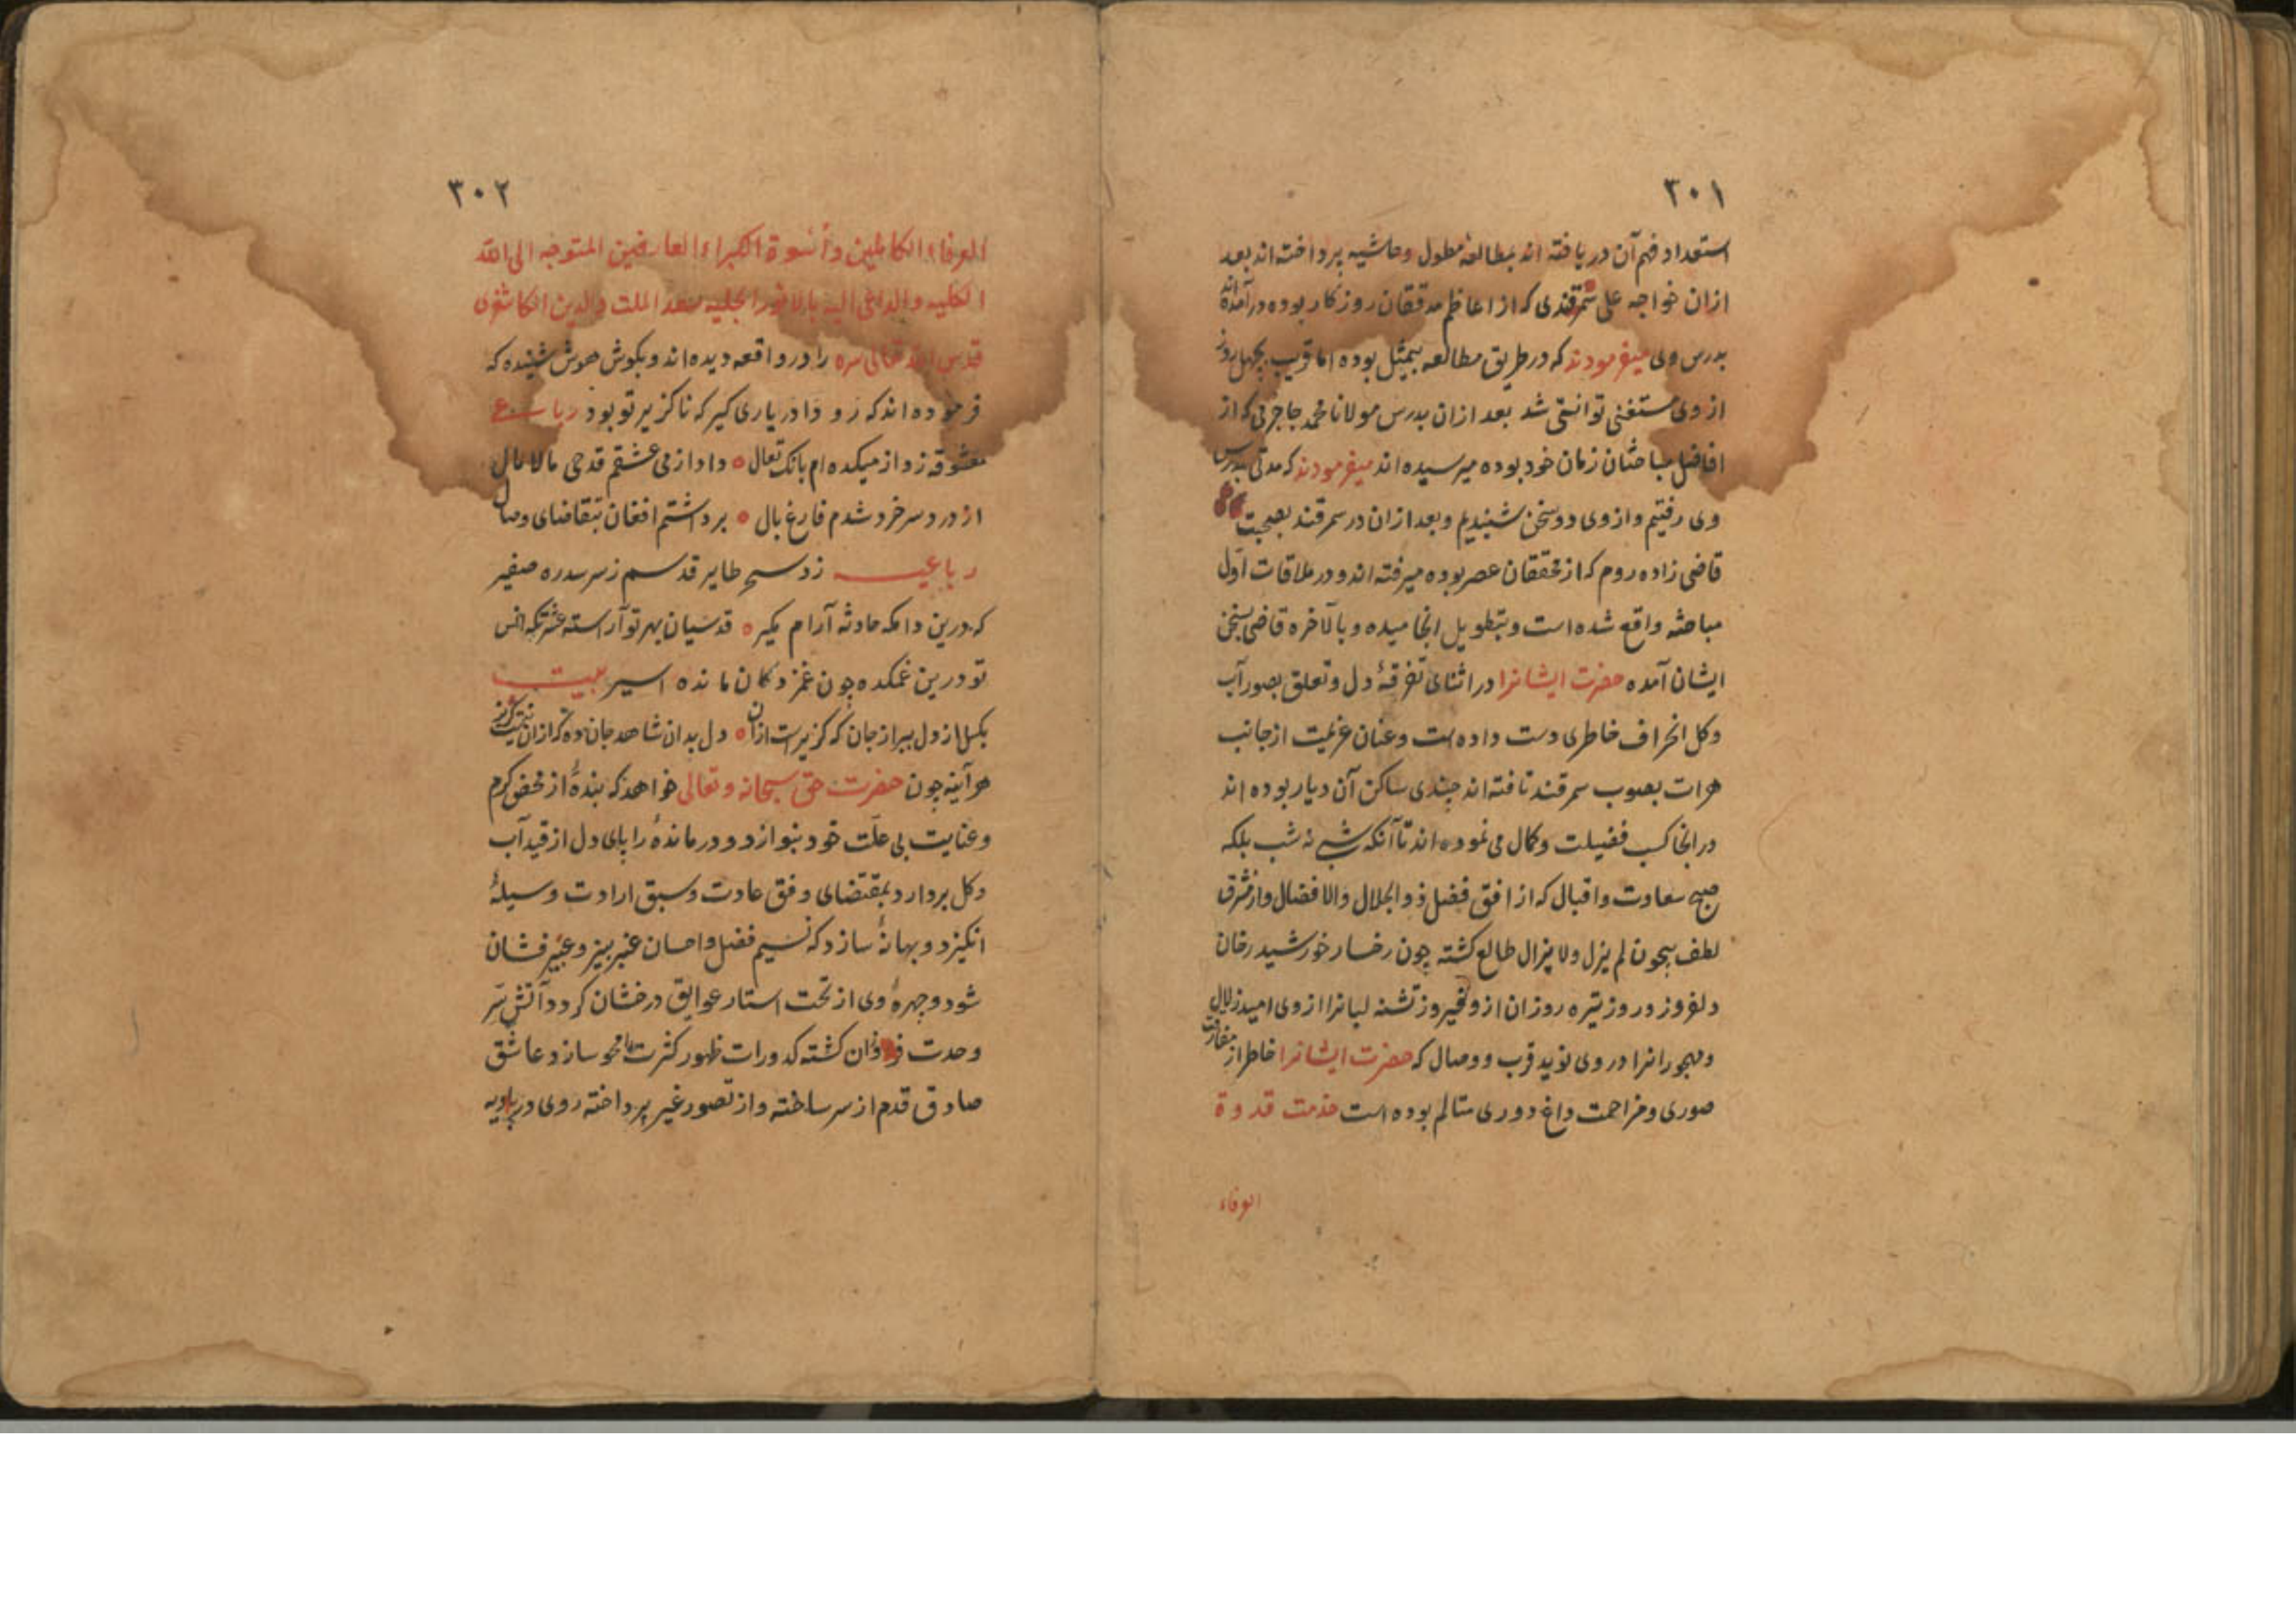 ۳۰۱
استعداد فهم آن دریافته اند بمطالعه مطول وحاشیه پرداخته اند بعد
ازان خواجه علی سمرقندی که از اعاظم مدققان روزکار بوده درآمده اند
بدرس وی میفرمودند که در طریق مطالعه بیمثل بوده اما قریب بچهل روز
از وی مستغنی توانستی شد بعد ازان بدرس مولانا محمد جاجرمی که از
افاضل مباحثان زمان خود بوده میرسیده اند میفرمودند که مدتی بدرس
وی رفتیم و ازوی دو سخن شنیدیم و بعد ازان در سمرقند بصحبت
قاضی زاده روم که از محققان عصر بوده میرفته اند و در ملاقات اول
مباحثه واقع شده است و بتطویل انجامیده و بالآخره قاضی بسخن
ایشان آمده حضرت ایشانرا در اثنای تفرقهٔ دل و تعلق بصور آب
وکل انحراف خاطری دست داده است و عنان عزیمت از جانب
هرات بصوب سمرقند تافته اند چندی ساکن آن دیار بوده اند
در انجا کسب فضیلت و کمال می نموده اند تا آنکه شبی نه شب بلکه
صبح سعادت و اقبال که از افق فضل ذوالجلال والافضال واز مشرق
لطف بیچون لم یزل ولا یزال طالع کشته چون رخسار خورشید رخان
دلفروز و روز تیره روزان ازو فیروز تشنه لبانرا ازوی امید زلال
و مهجورانرا در وی نوید قرب و وصال که حضرت ایشانرا خاطر از مفارقت
صوری و مزاحمت داغ دوری متالم بوده است خدمت قدوة
العرفاء
۳۰۲
العرفاء الکاملین و أسوة الکبراء العارفین المتوجه الی الله
الکلیه والداعی الیه بالانوار الجلیه سعد الملت والدین الکاشغری
قدس الله تعالی سره را در واقعه دیده اند و بکوش هوش شنیده که
فرموده اند که رو دا دریاری کیر که ناکزیر تو بود رباعی
معشوقه زد از میکده ام بانک تعال ٥ داد از می عشقم قدحی مالامال
از درد سر خرد شدم فارغ بال ٥ برداشتم افغان بتقاضای وصال
رباعیه زد سحر طایر قدسم ز سر سدره صفیر
که درین دامکه حادثه آرام مکیر ٥ قدسیان بهر تو آراسته عشرتکه انس
تو درین غمکده چون غمزدکان مانده اسیر بیت
بکسل از دل ببر از جان که کزیرست ازان ٥ دل بدان شاهد جان ده که ازان نیست کزیر
هر آینه چون حضرت حق سبحانه و تعالی خواهد که بندهٔ از محض کرم
وعنایت بی علت خود بنوازد و درماندهٔ را پای دل از قید آب
وکل بردارد بمقتضای وفق عادت و سبق ارادت وسیلهٔ
انکیزد و بهانهٔ سازد که نسیم فضل و احسان عنبر بیز و عبیر فشان
شود و چهرهٔ وی از تحت استار عوایق درخشان کردد آتش سر
وحدت فروزان کشته کدورات ظهور کثرت را محو سازد عاشق
صادق قدم از سر ساخته و از تصور غیر پرداخته روی در بادیه